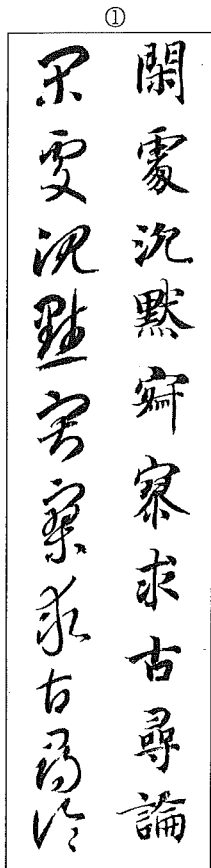 ①
閑處沉默寂寥求古尋論
閑處沉默寂寥求古尋論